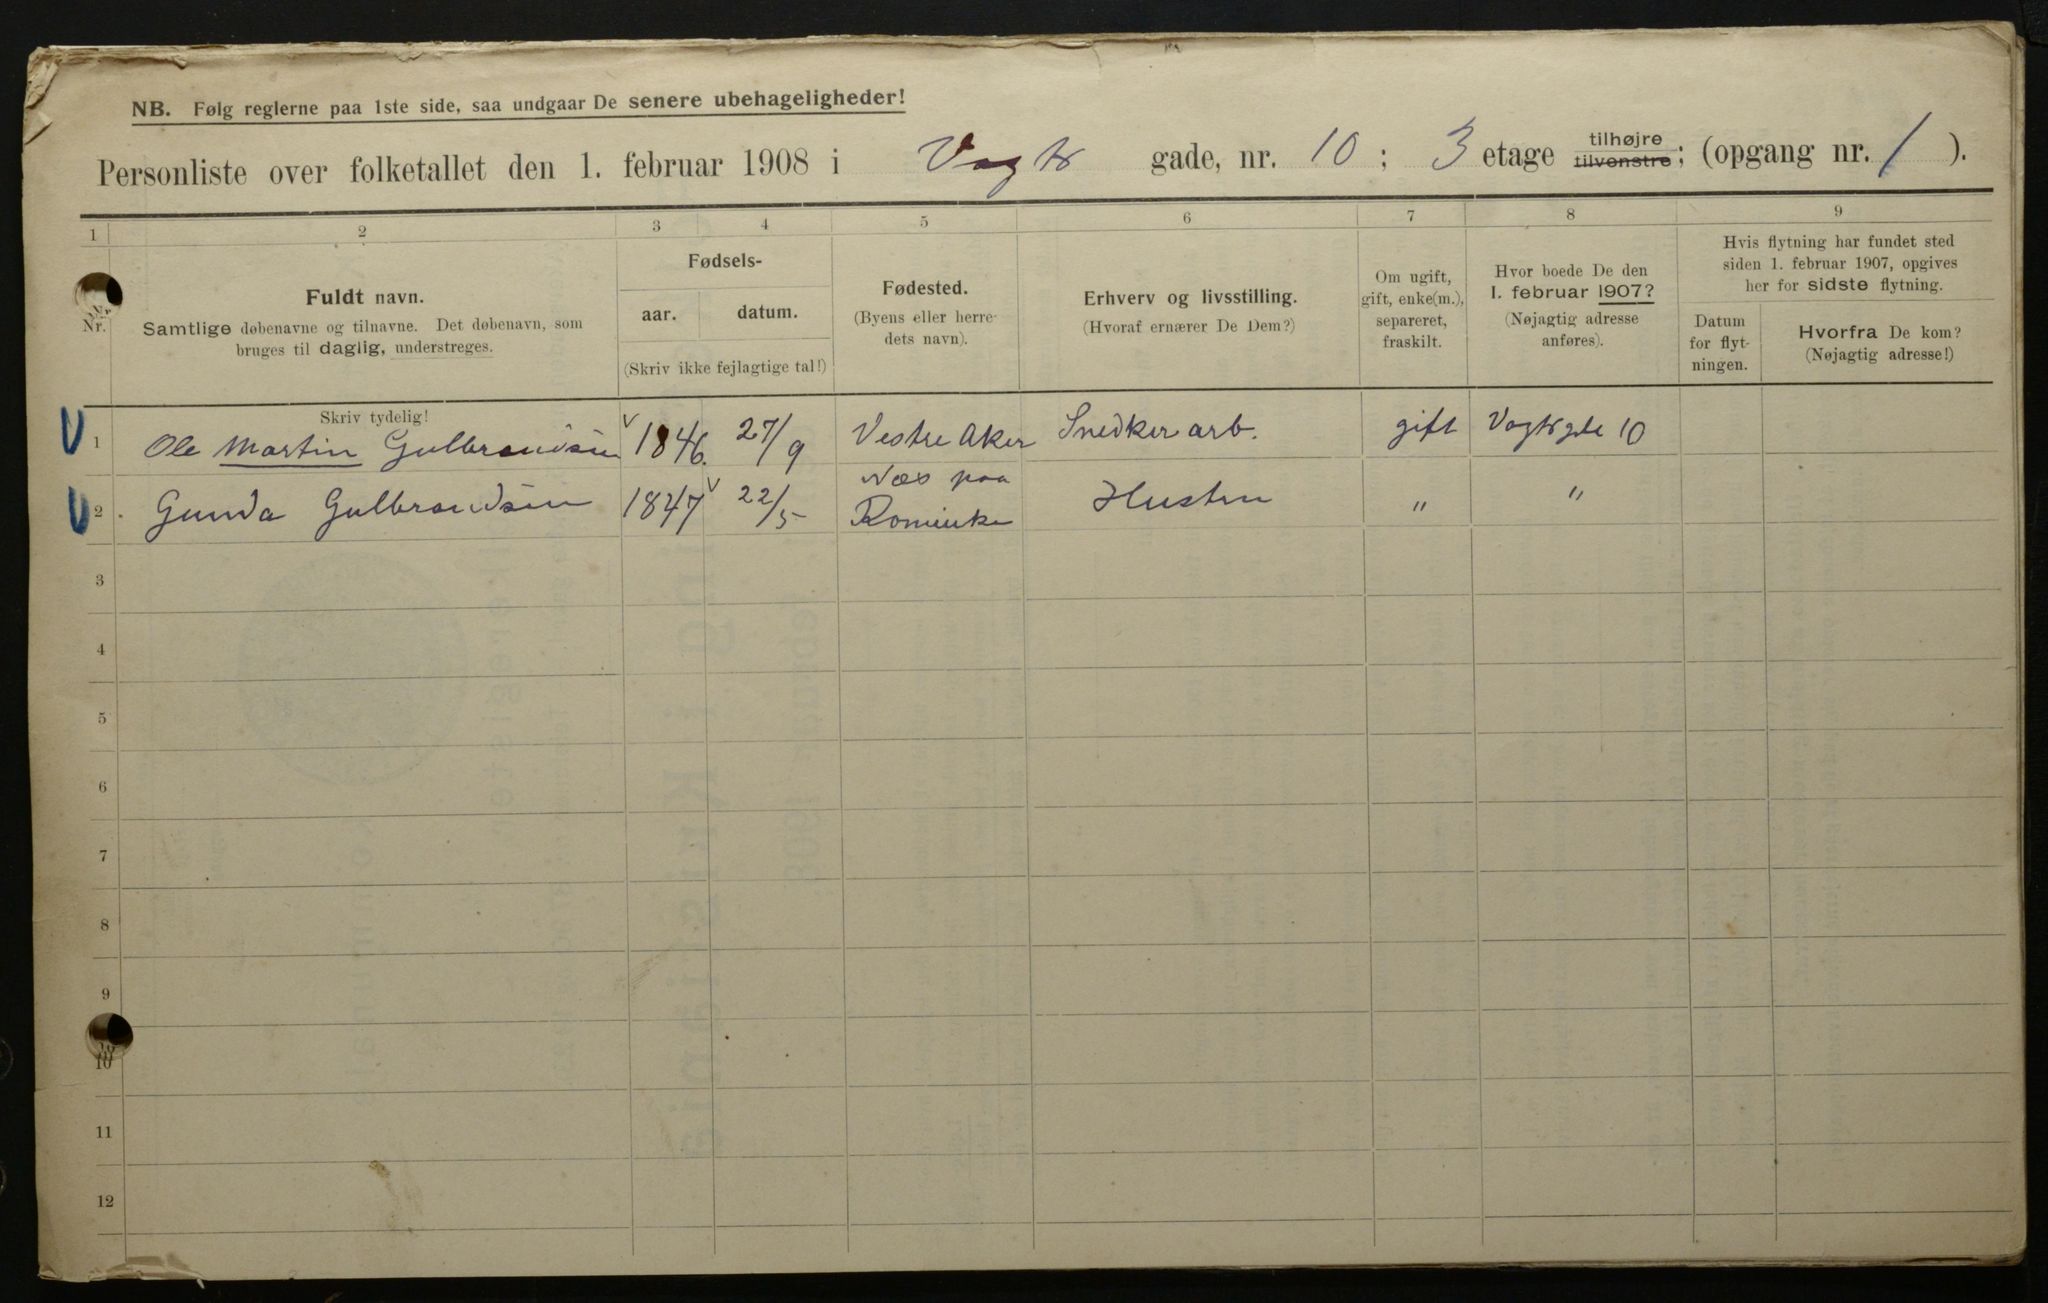 NB. Følg reglerne paa 1ste side, saa undgaar De senere ubehageligheder!
Personliste over folketallet den 1. februar 1908 i Vogts gade, nr. 10 ; 3 etage tilhøjre tilvenstre; (opgang nr. 1 ).
1 2 3 4 5 6 7 8 9
Nr.
Fuldt navn.
Samtlige døbenavne og tilnavne. Det døbenavn, som
bruges til daglig, understreges.
Skriv tydelig!
Fødsels-
aar. datum.
(Skriv ikke fejlagtige tal!)
Fødested.
(Byens eller herre-
dets navn).
Erhverv og livsstilling.
(Hvoraf ernærer De Dem?)
Om ugift,
gift, enke(m.),
separeret,
fraskilt.
Hvor boede De den
1. februar 1907?
(Nøjagtig adresse
anføres).
Hvis flytning har fundet sted
siden 1. februar 1907, opgives
her for sidste flytning.
Datum
for flyt-
ningen.
Hvorfra De kom?
(Nøjagtig adresse!)
1 Ole Martin Gulbrandsen 1846. 27/9 Vestre Aker Snedker arb. gift Vogtsgde 10
2 Gunda Gulbrandsen 1847 22/5 Næs paa Romerike Hustru " "
3
4
5
6
7
8
9
10
11
12